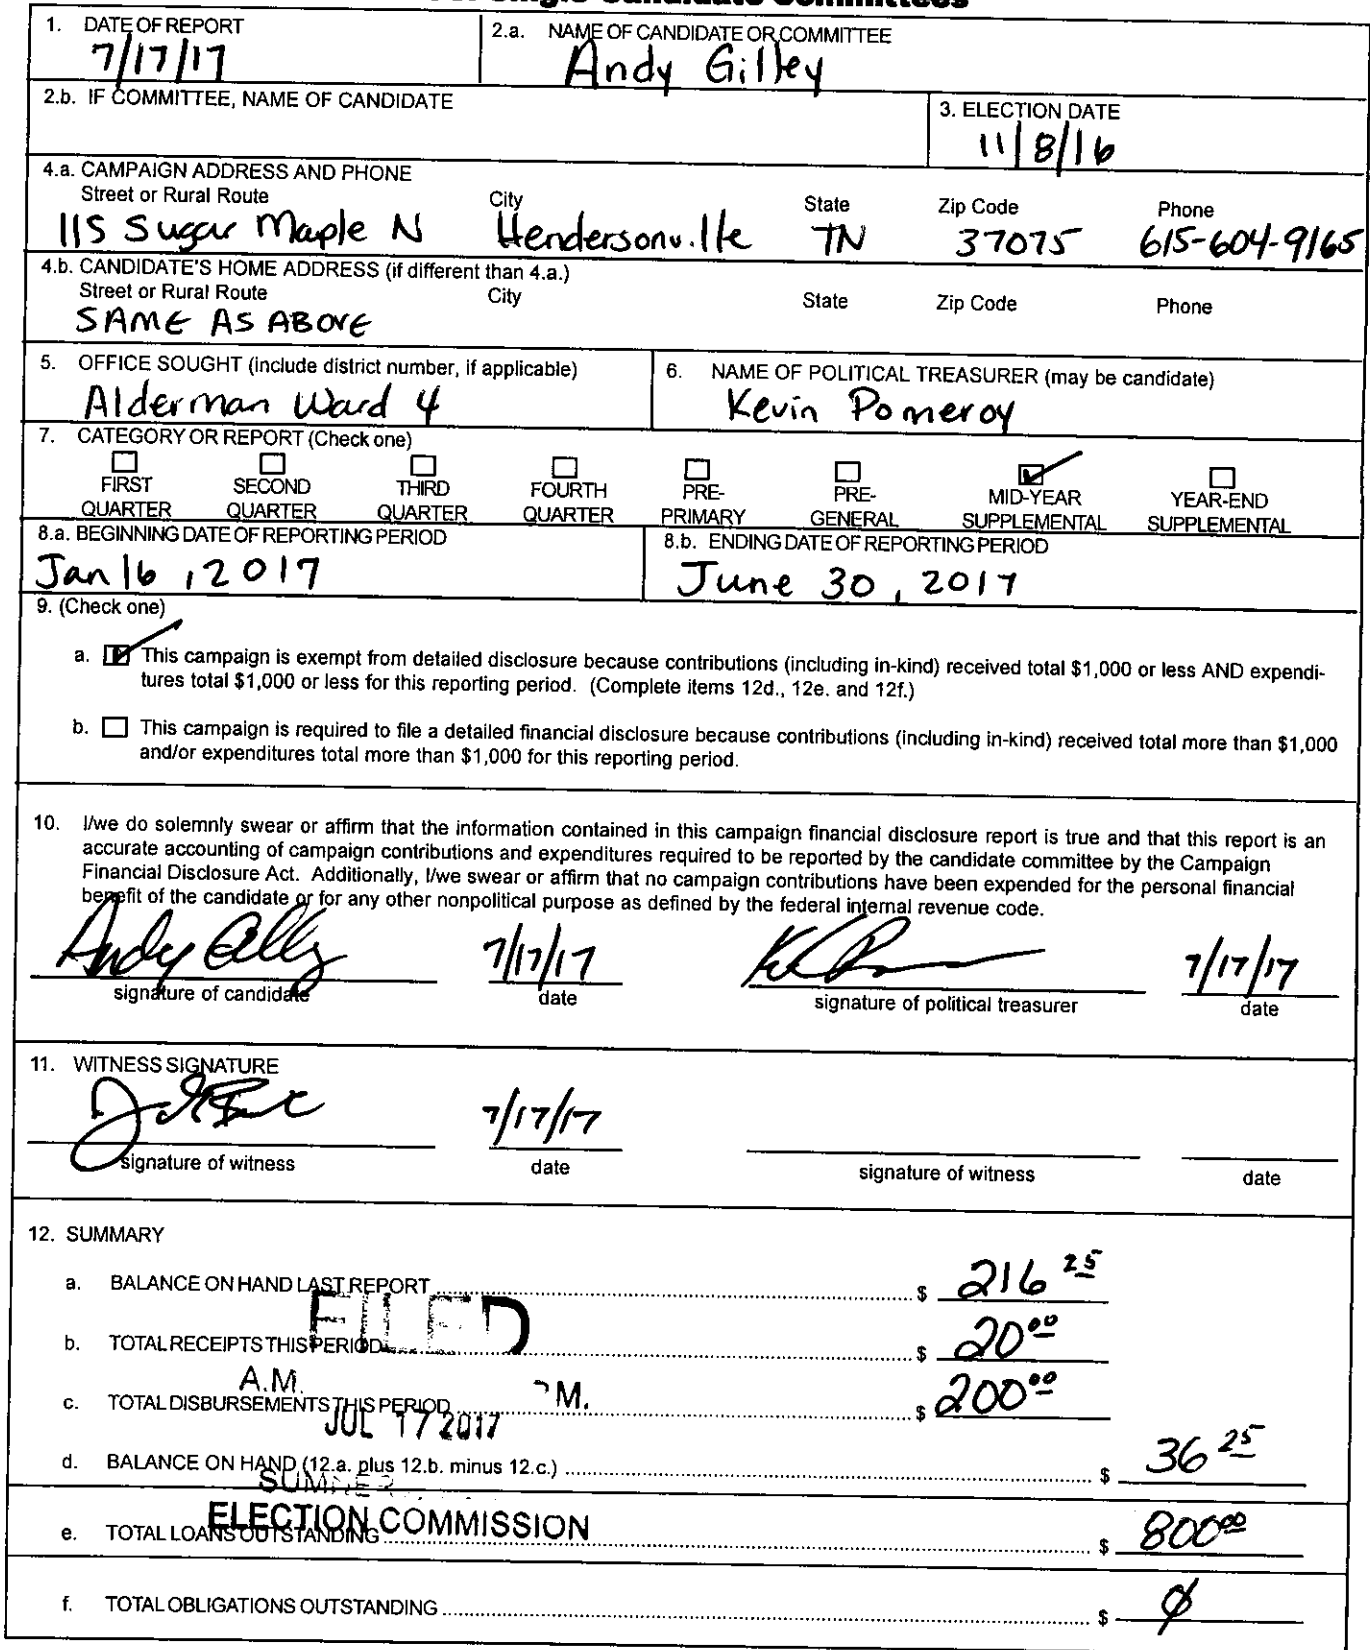 Single Candidate Committees
1. DATE OF REPORT
7/17/17
2.a. NAME OF CANDIDATE OR COMMITTEE
Andy Gilley
2.b. IF COMMITTEE, NAME OF CANDIDATE
3. ELECTION DATE
11/8/16
4.a. CAMPAIGN ADDRESS AND PHONE
Street or Rural Route City State Zip Code Phone
115 Sugar Maple N Hendersonville TN 37075 615-604-9165
4.b. CANDIDATE'S HOME ADDRESS (if different than 4.a.)
Street or Rural Route City State Zip Code Phone
SAME AS ABOVE
5. OFFICE SOUGHT (include district number, if applicable)
Alderman Ward 4
6. NAME OF POLITICAL TREASURER (may be candidate)
Kevin Pomeroy
7. CATEGORY OR REPORT (Check one)
FIRST QUARTER
SECOND QUARTER
THIRD QUARTER
FOURTH QUARTER
PRE-PRIMARY
PRE-GENERAL
MID-YEAR SUPPLEMENTAL
YEAR-END SUPPLEMENTAL
8.a. BEGINNING DATE OF REPORTING PERIOD
Jan 16, 2017
8.b. ENDING DATE OF REPORTING PERIOD
June 30, 2017
9. (Check one)
a. This campaign is exempt from detailed disclosure because contributions (including in-kind) received total $1,000 or less AND expendi-
tures total $1,000 or less for this reporting period. (Complete items 12d., 12e. and 12f.)
b. This campaign is required to file a detailed financial disclosure because contributions (including in-kind) received total more than $1,000
and/or expenditures total more than $1,000 for this reporting period.
10. I/we do solemnly swear or affirm that the information contained in this campaign financial disclosure report is true and that this report is an
accurate accounting of campaign contributions and expenditures required to be reported by the candidate committee by the Campaign
Financial Disclosure Act. Additionally, I/we swear or affirm that no campaign contributions have been expended for the personal financial
benefit of the candidate or for any other nonpolitical purpose as defined by the federal internal revenue code.
Andy Gilley 7/17/17 7/17/17
signature of candidate date signature of political treasurer date
11. WITNESS SIGNATURE
7/17/17
signature of witness date signature of witness date
12. SUMMARY
a. BALANCE ON HAND LAST REPORT $ 216 25
FILED
b. TOTAL RECEIPTS THIS PERIOD $ 20 00
A.M. P.M.
c. TOTAL DISBURSEMENTS THIS PERIOD $ 200 00
JUL 17 2017
d. BALANCE ON HAND (12.a. plus 12.b. minus 12.c.) $ 36 25
SUMNER
ELECTION COMMISSION
e. TOTAL LOANS OUTSTANDING $ 800 00
f. TOTAL OBLIGATIONS OUTSTANDING $ Ø